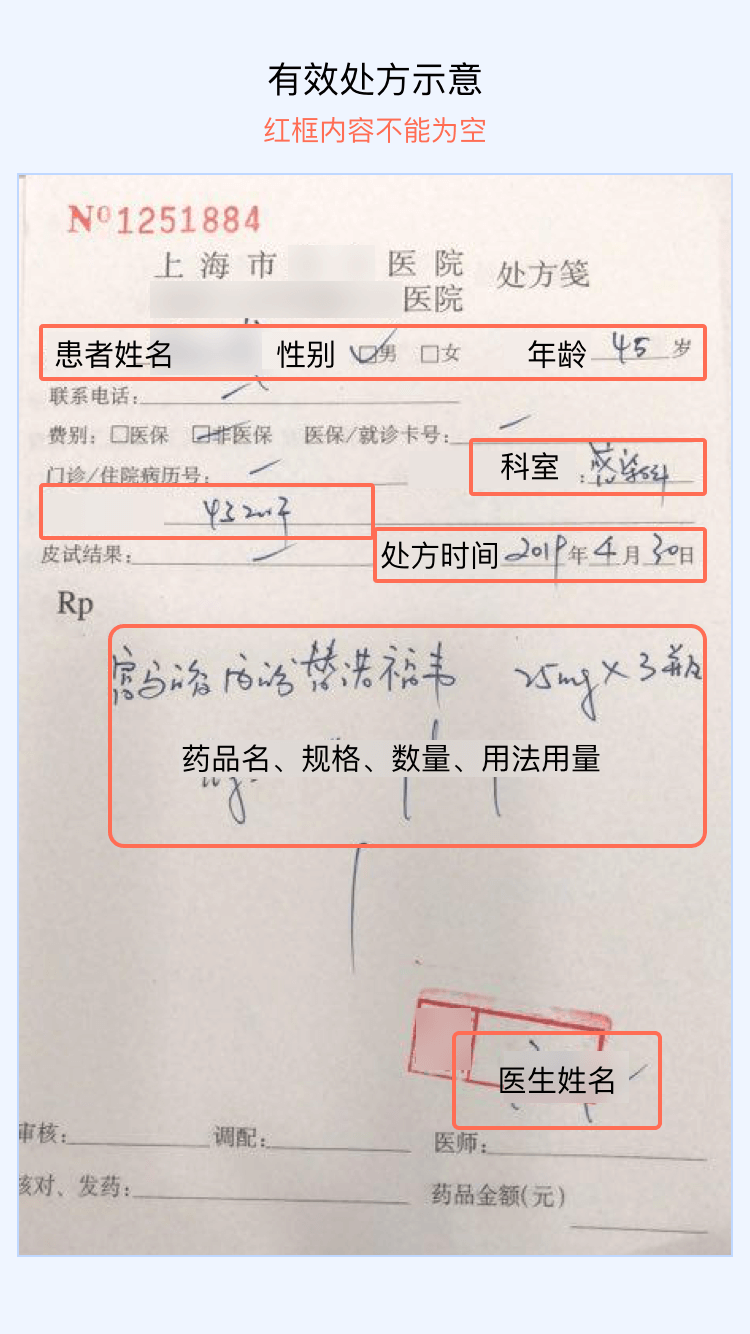 有效处方示意
红框内容不能为空
Nº1251884
上海市 医院 处方笺
医院
患者姓名 性别 男 女 年龄 45 岁
联系电话:
费别: 医保 非医保 医保/就诊卡号:
门诊/住院病历号: 科室: 感染科
皮试结果: 处方时间 2019年4月30日
Rp
富马酸丙酚替诺福韦 25mg×3瓶
药品名、规格、数量、用法用量
医生姓名
审核: 调配: 医师:
核对、发药: 药品金额(元)